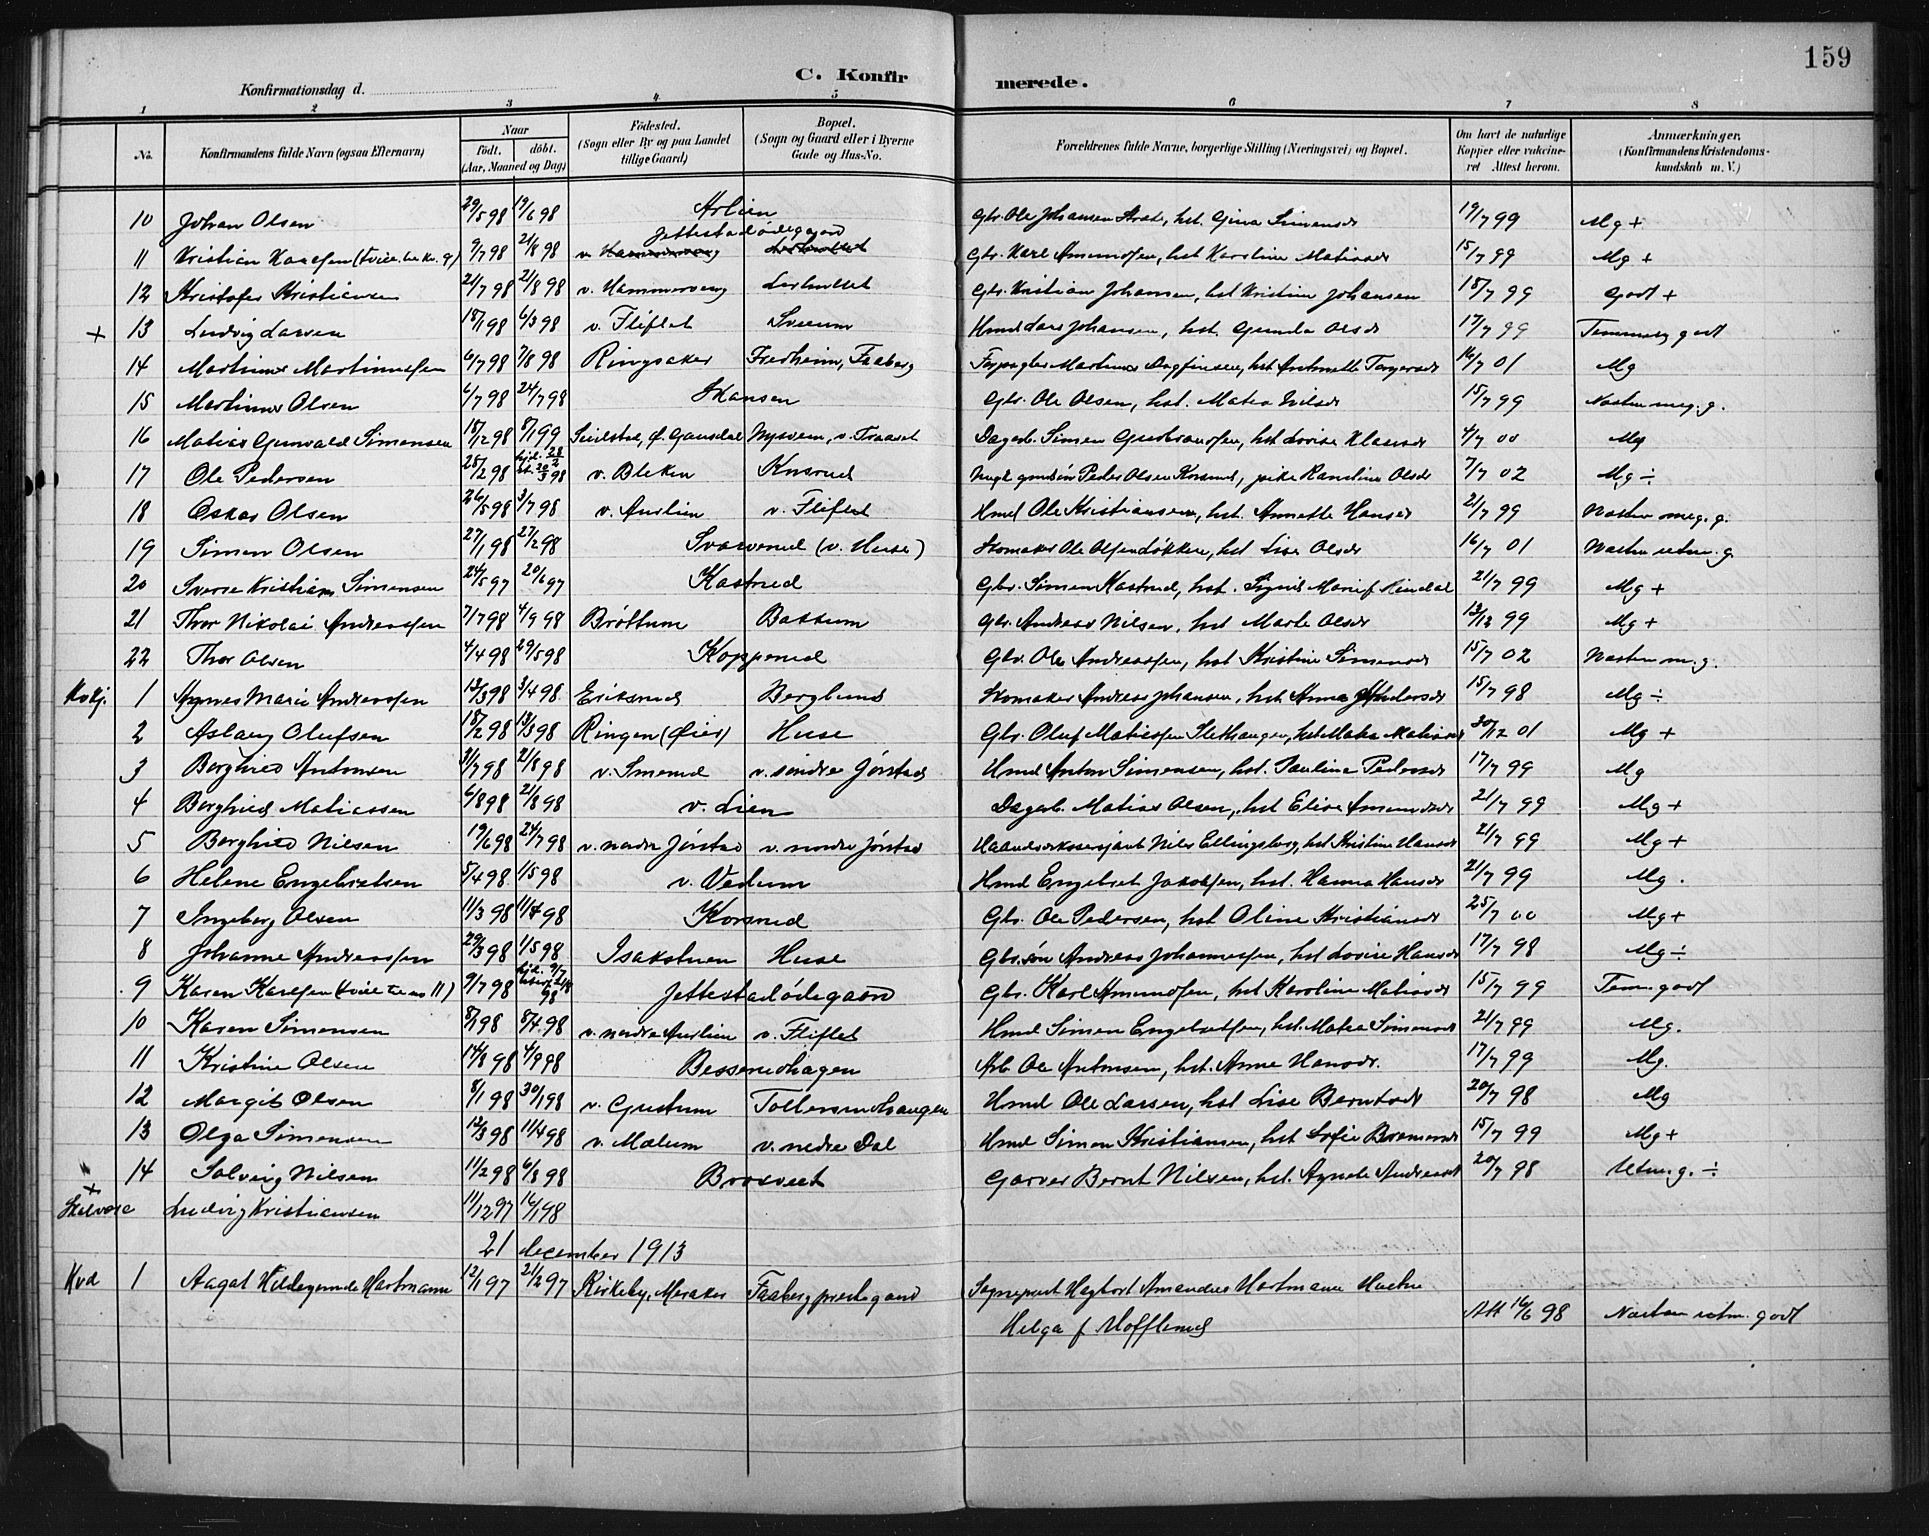 159
C. Konfirmerede.
Konfirmationsdag d.
1 2 3 4 5 6 7 8
No. Konfirmandens fulde Navn (ogsaa Efternavn) Naar født. døbt. (Aar, Maaned og Dag) Fødested. (Sogn eller By og paa Landet tillige Gaard) Bopæl. (Sogn og Gaard eller i Byerne Gade og Hus-No. Forældrenes fulde Navne, borgerlige Stilling (Næringsvei) og Bopæl. Om havt de naturlige Kopper eller vakcineret Attest herom. Anmærkninger, (Konfirmandens Kristendomskundskab m. V.)
10 Johan Olsen 29/5 98 19/6 98 Gbr. Ole Johansen hst. Gina Simensdr 19/7 99 Mg +
Jettestadødegaard
11 Kristian Karlsen 9/7 98 21/8 98 v. Hammerveng Lerhullet Gbr. Karl Amundsen, hst Karoline Matiasdr 15/7 99 Mg +
12 Kristofer Kristiansen 21/7 98 21/8 98 v. Hammerveng Lerhullet Gbr. Kristian Johansen, hst Kristine Johansen 15/7 99 Godt +
+ 13 Ludvig Larsen 18/1 98 6/3 98 v. Fliflet Sveum Hmd Lars Johansen, hst. Gunda Olsdr 17/7 99 Temmelig godt
14 Martinus Martinussen 6/7 98 7/8 98 Ringsaker Fredheim, Faaberg Forpagter Martinus Dagfinsen, hst Antonette Torgersdr 16/7 01 Mg
15 Martinus Olsen 6/7 98 24/7 98 Skansen Gbr. Ole Olsen, hst. Matea Nilsdr 15/7 99 Næsten meg. g.
16 Matias Gunvald Simensen 18/12 98 8/1 99 ø. Gausdal Nysveen, Dagarb. Simen Gudbrandsen, hst Lovise Klausdr 4/7 00 Mg
17 Ole Pedersen 25/2 98 hjd. 28/2 st. 20/3 98 v. Bleken Korsrud Ungk. gmdsøn Peder Olsen Korsrud, pike Karoline Olsdr 7/7 02 Mg ÷
18 Oskar Olsen 26/5 98 3/7 98 v. Aurlien v. Fliflet Hmd Ole Kristiansen, hst. Annette Hansdr 21/7 99 Næsten meg. g.
19 Simen Olsen 27/1 98 27/2 98 Svarverud (v. Huse) Skomaker Ole Olsen Løkken, hst Lise Olsdr 16/7 01 Næsten utm. g.
20 Sverre Kristian Simensen 24/5 97 20/6 97 Kastrud Gbr. Simen Kastrud, hst. Sigrid Marie f Rindal 21/7 99 Mg +
21 Thor Nikolai Andreassen 7/7 98 4/9 98 Brøttum Bakkum Gbr. Andreas Nilsen, hst Marte Olsdr 13/12 99 Mg +
22 Thor Olsen 4/4 98 29/5 98 Kopperud Gbr. Ole Andreassen, hst Kristine Simensdr 15/7 02 Næsten m. g.
Kvkj. 1 Agnes Marie Andreassen 13/3 98 3/4 98 Eriksrud Berglund Skomaker Andreas Johansen, hst Anna Andersdr 15/7 98 Mg ÷
2 Aslaug Olufsen 18/2 98 13/3 98 Ringen (Øier) Huse Gbr. Oluf Matiassen Slethaugen, hst Matea Matiasdr 30/12 01 Mg +
3 Borghild Antonsen 31/7 98 21/8 98 v. Smerud v. søndre Jørstad Hmd Anton Simensen, hst. Pauline Pedersdr 17/7 99 Mg
4 Borghild Matiassen 6/8 98 21/8 98 v. Lien Dagarb. Matias Olsen, hst Elise Amundsdr 21/7 99 Mg +
5 Borghild Nilsen 19/6 98 24/7 98 v. nordre Jørstad v. nordre Jørstad Haandverkssersjant Nils Ellingsberg, hst Kristine Hansdr 21/7 99 Mg +
6 Helene Engebretsen 5/4 98 1/5 98 v. Vedum Hmd Engebret Jakobsen, hst. Hanna Hansdr 21/7 99 Mg.
7 Ingeborg Olsen 11/3 98 11/4 98 Korsrud Gbr. Ole Pedersen, hst Oline Kristiansdr 25/7 00 Mg +
8 Johanne Andreassen 29/3 98 1/5 98 Isakstuen Huse Gbr.søn Andreas Johannessen, hst Lovise Hansdr 17/7 98 Mg ÷
9 Karen Karlsen (tvil. til no 11) 9/7 98 hjd. 9/7 21/8 98 Jettestadødegaard Gbr. Karl Amundsen, hst Karoline Matiasdr 15/7 99 Tem. godt
10 Karen Simensen 8/1 98 8/4 98 v. nedre Aurlien v. Fliflet Hmd Simen Engebretsen, hst. Matea Simensdr 21/7 99 Mg.
11 Kristine Olsen 14/8 98 4/9 98 Besserudhagen Arb Ole Antonsen, hst. Anne Hansdr. 17/7 99 Mg.
12 Margit Olsen 8/1 98 30/1 98 v. Gustum Tollersrudhaugen Hmd Ole Larsen, hst Lise Berntsdr 20/7 98 Mg
13 Olga Simensen 12/3 98 11/4 98 v. Mælum v. nedre Dal Hmd Simen Kristiansen, hst Sofie 15/7 99 Mg +
14 Solveig Nilsen 11/2 98 6/3 98 Braaveit Garver Bernt Nilsen, hst. Agnete Andreasdr 20/7 98 Utm. g. ÷
+ Ludvig Kristiansen 11/12 97 16/1 98
21 december 1913
Kvd 1 Aagot Hildegunde Hartmann 12/1 97 21/2 97 Kirkeby, Meraker Faaberg prestegaard Sogneprest Hagbart Amandus Hartmann Hustru
Helga f Hofflund Att 16/6 98 Næsten utm. godt